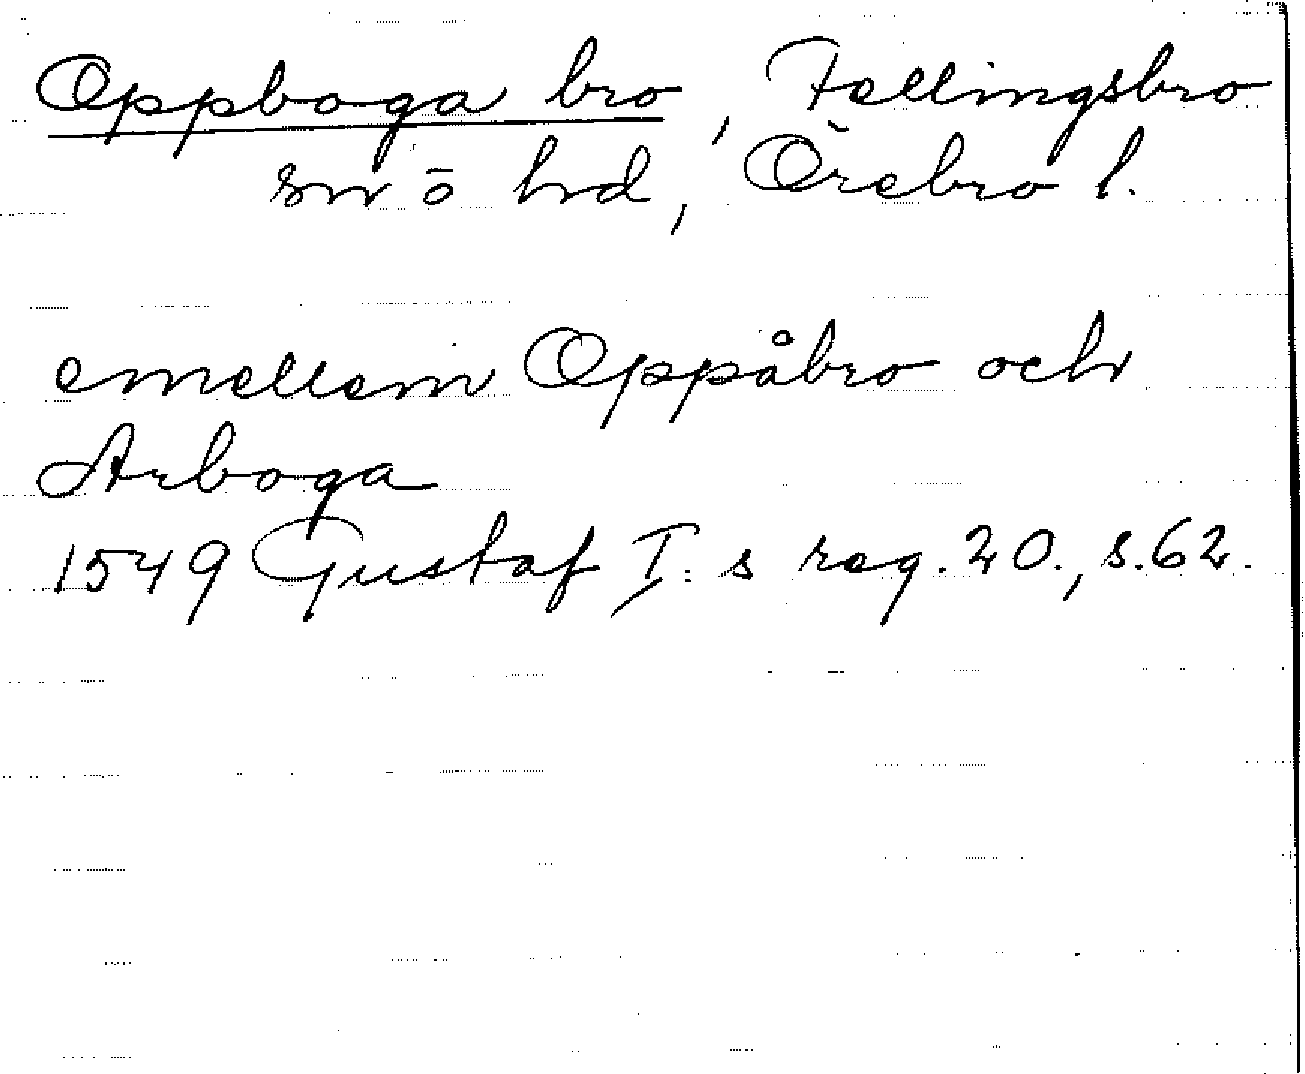 Oppboga bro, Fellingsbro
sn o hd, Örebro l.
emellem Oppåbro och
Arboga
1549 Gustaf I:s reg. 20., s. 62.